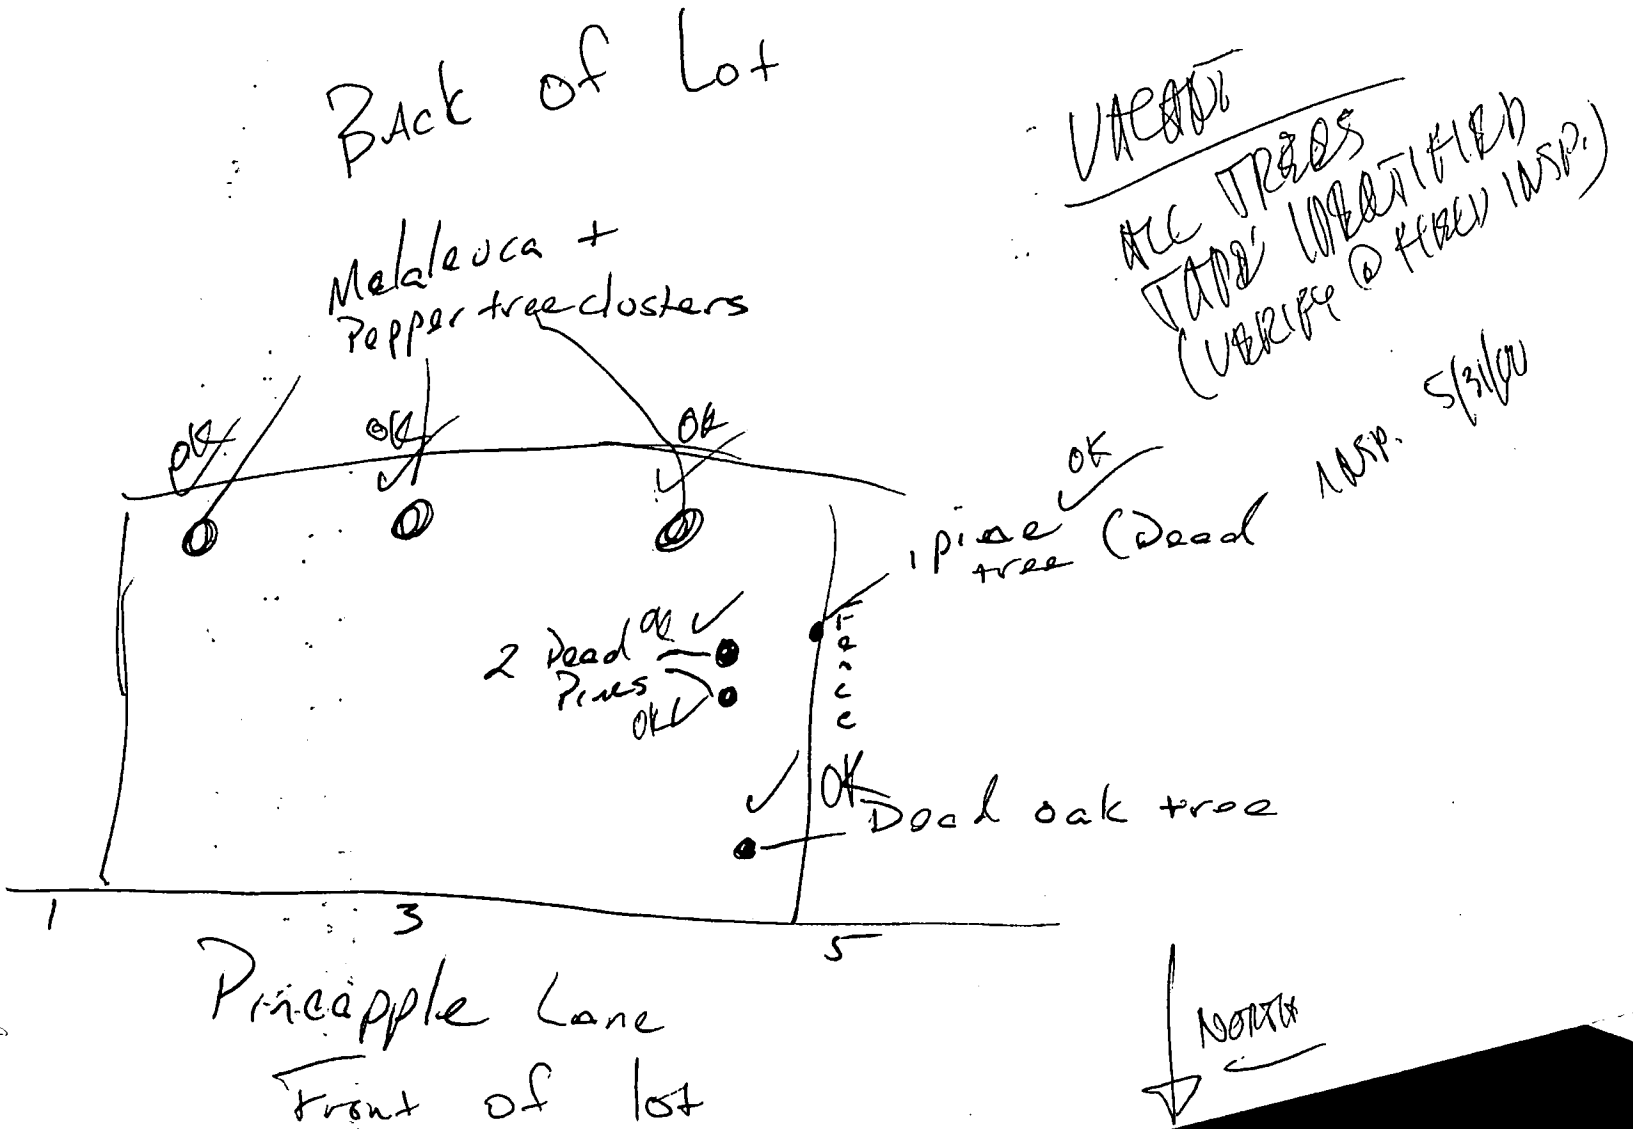 Back of Lot
VACANT
ALL TREES
TAPE IDENTIFIED
(VERIFY @ FIELD INSP.)
INSP. 5/31/00
Melaleuca +
Pepper tree clusters
OK
OK
OK
OK
1 pine
tree (Dead
2 Dead OK
Pines
OK
Fence
OK
Dead oak tree
1 3 5
Pineapple Lane
Front of lot
NORTH